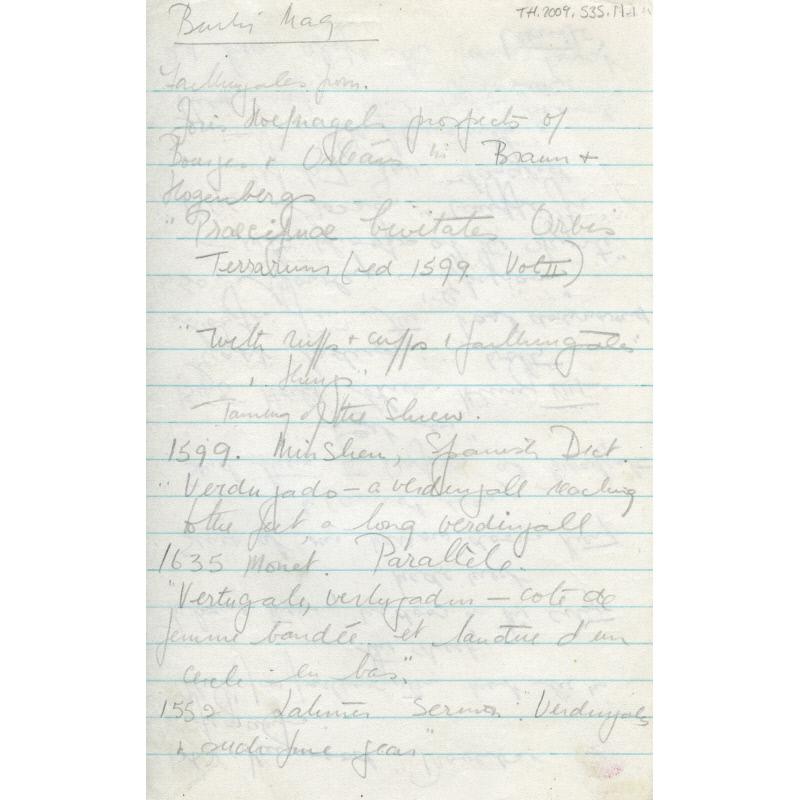 TH.2009.535.11.1
Burl. Mag
Farthingales from.
Joris Hoefnagel prospects of
Bourges + Orleans in Braun +
Hogenbergs
"Praecipuae Civitates Orbis
Terrarum (ed 1599 Vol II)
"With ruffs + cuffs + farthingales
+ things"
Taming of the Shrew.
1599. Minsheu, Spanish Dict.
"Verdugado – a verdingall reaching
to the feet, a long verdingall
1635 Monet. Parallele.
"Vertugale, vertugadin – cote de
femme bandée et tendue d'un
cercle en bas."
1552 Latimer Sermon "Verdingals
& such fine gear"